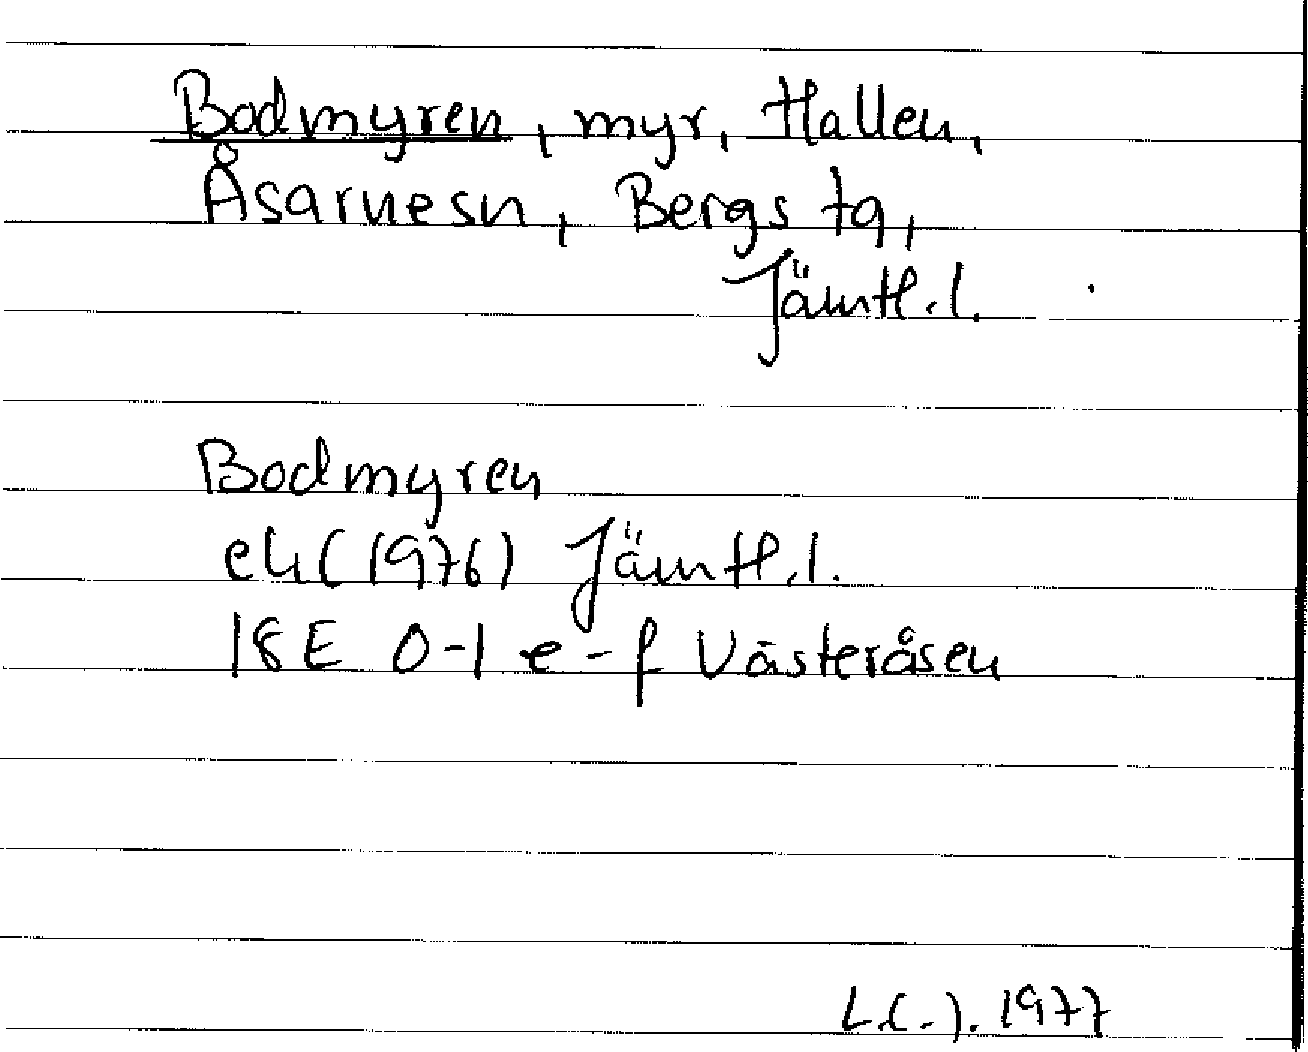 Bodmyren, myr, Hallen,
Åsarnesn, Bergs tg,
Jämtl.l.
Bodmyren
ek (1976) Jämtl.l.
18E 0-1 e-f Västeråsen
1977